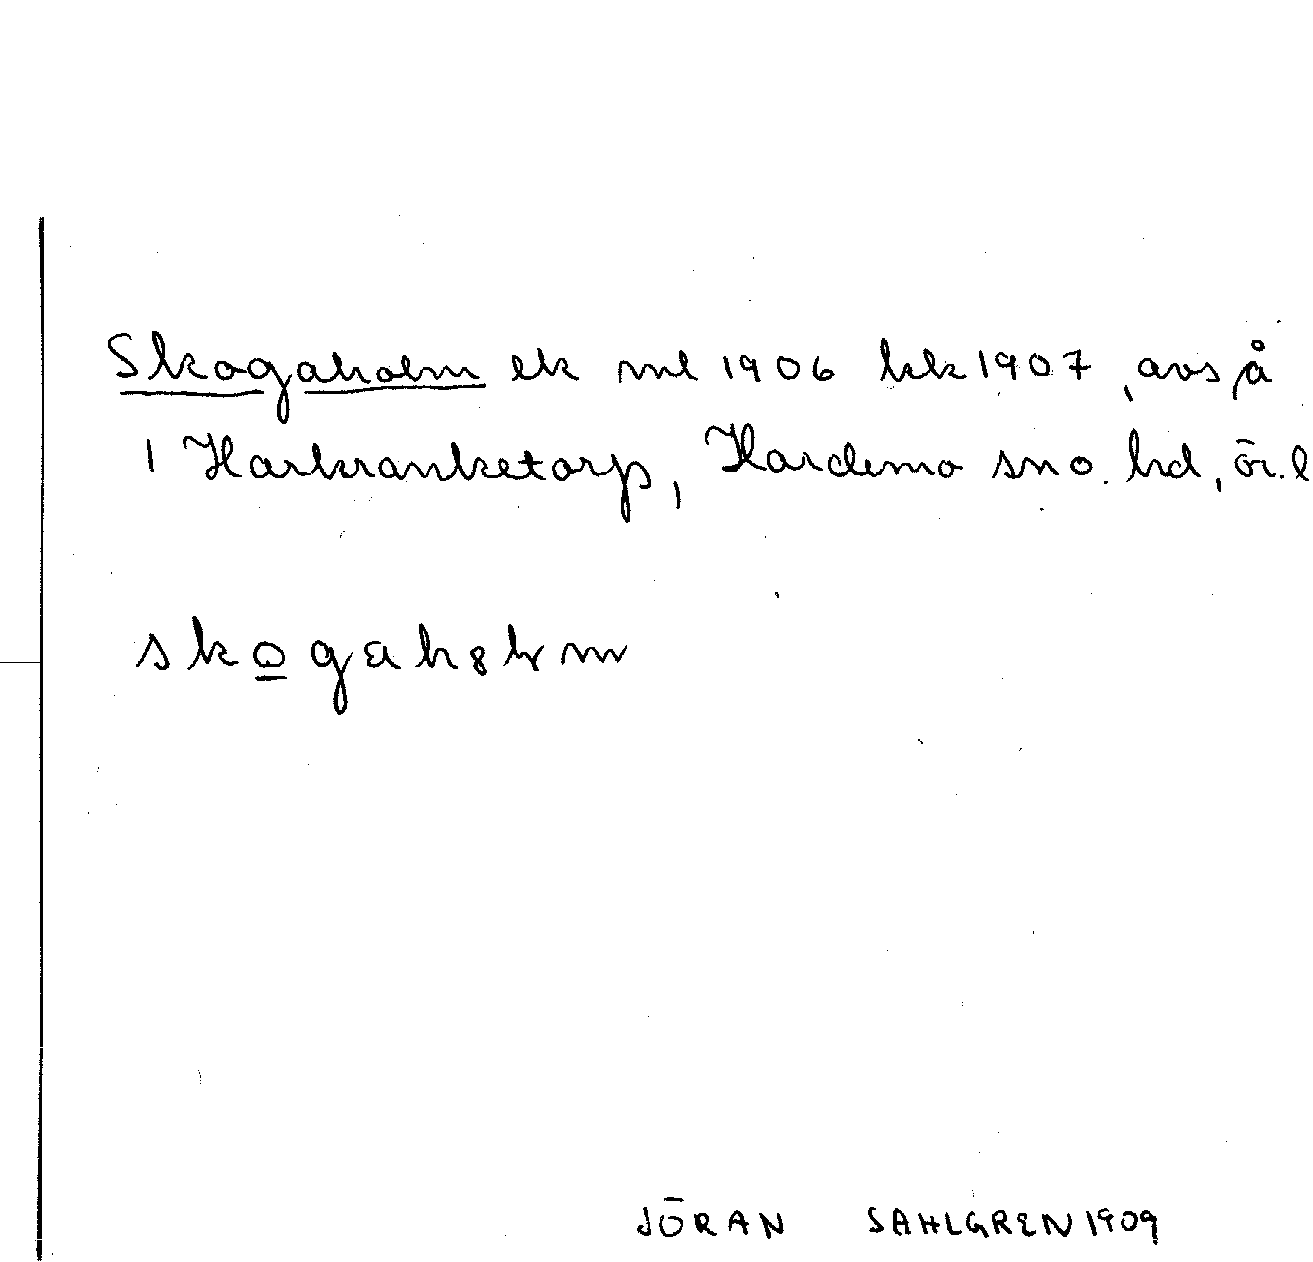 Skogaholm ek ml 1906 kk 1907, avs å
1 Harkranketorp, Hardemo sn o. hd, ör. l
skogahəlm
JÖRAN SAHLGREN 1909